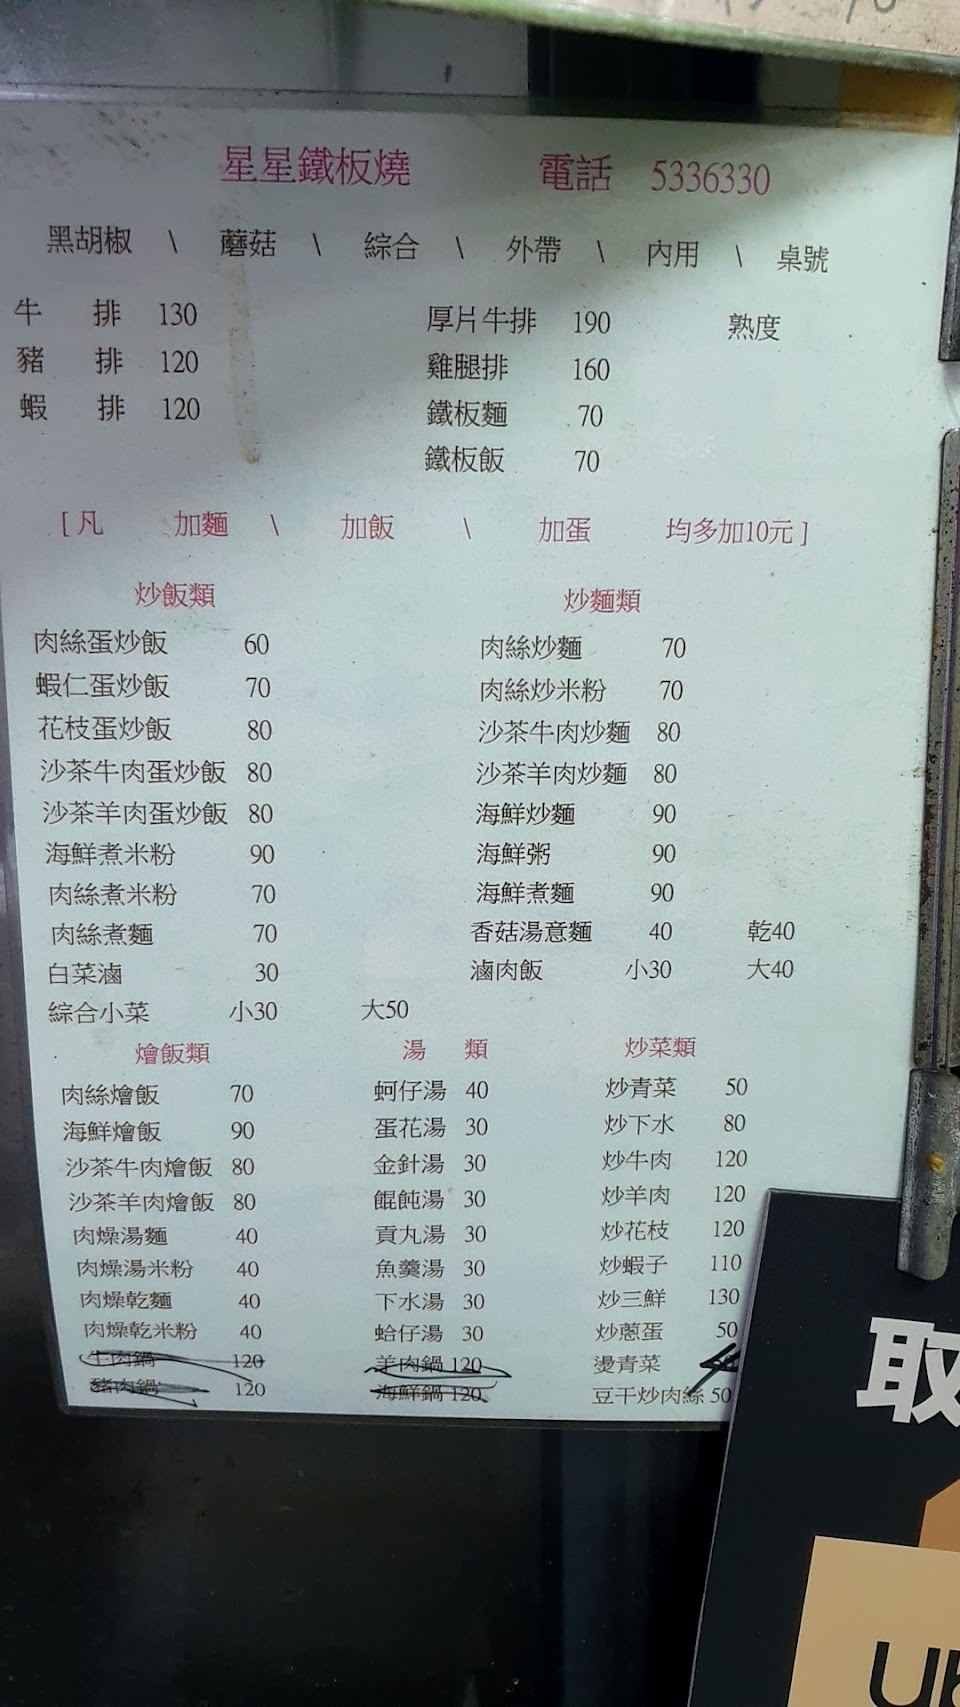 星星鐵板燒 電話 5336330
黑胡椒 \ 蘑菇 \ 綜合 \ 外帶 \ 內用 \ 桌號
牛 排 130 厚片牛排 190 熟度
豬 排 120 雞腿排 160
蝦 排 120 鐵板麵 70
鐵板飯 70
[ 凡 加麵 \ 加飯 \ 加蛋 均多加10元 ]
炒飯類 炒麵類
肉絲蛋炒飯 60 肉絲炒麵 70
蝦仁蛋炒飯 70 肉絲炒米粉 70
花枝蛋炒飯 80 沙茶牛肉炒麵 80
沙茶牛肉蛋炒飯 80 沙茶羊肉炒麵 80
沙茶羊肉蛋炒飯 80 海鮮炒麵 90
海鮮煮米粉 90 海鮮粥 90
肉絲煮米粉 70 海鮮煮麵 90
肉絲煮麵 70 香菇湯意麵 40 乾40
白菜滷 30 滷肉飯 小30 大40
綜合小菜 小30 大50
燴飯類 湯 類 炒菜類
肉絲燴飯 70 蚵仔湯 40 炒青菜 50
海鮮燴飯 90 蛋花湯 30 炒下水 80
沙茶牛肉燴飯 80 金針湯 30 炒牛肉 120
沙茶羊肉燴飯 80 餛飩湯 30 炒羊肉 120
肉燥湯麵 40 貢丸湯 30 炒花枝 120
肉燥湯米粉 40 魚羹湯 30 炒蝦子 110
肉燥乾麵 40 下水湯 30 炒三鮮 130
肉燥乾米粉 40 蛤仔湯 30 炒蔥蛋 50
牛肉鍋 120 羊肉鍋 120 燙青菜
豬肉鍋 120 海鮮鍋 120 豆干炒肉絲 50
取